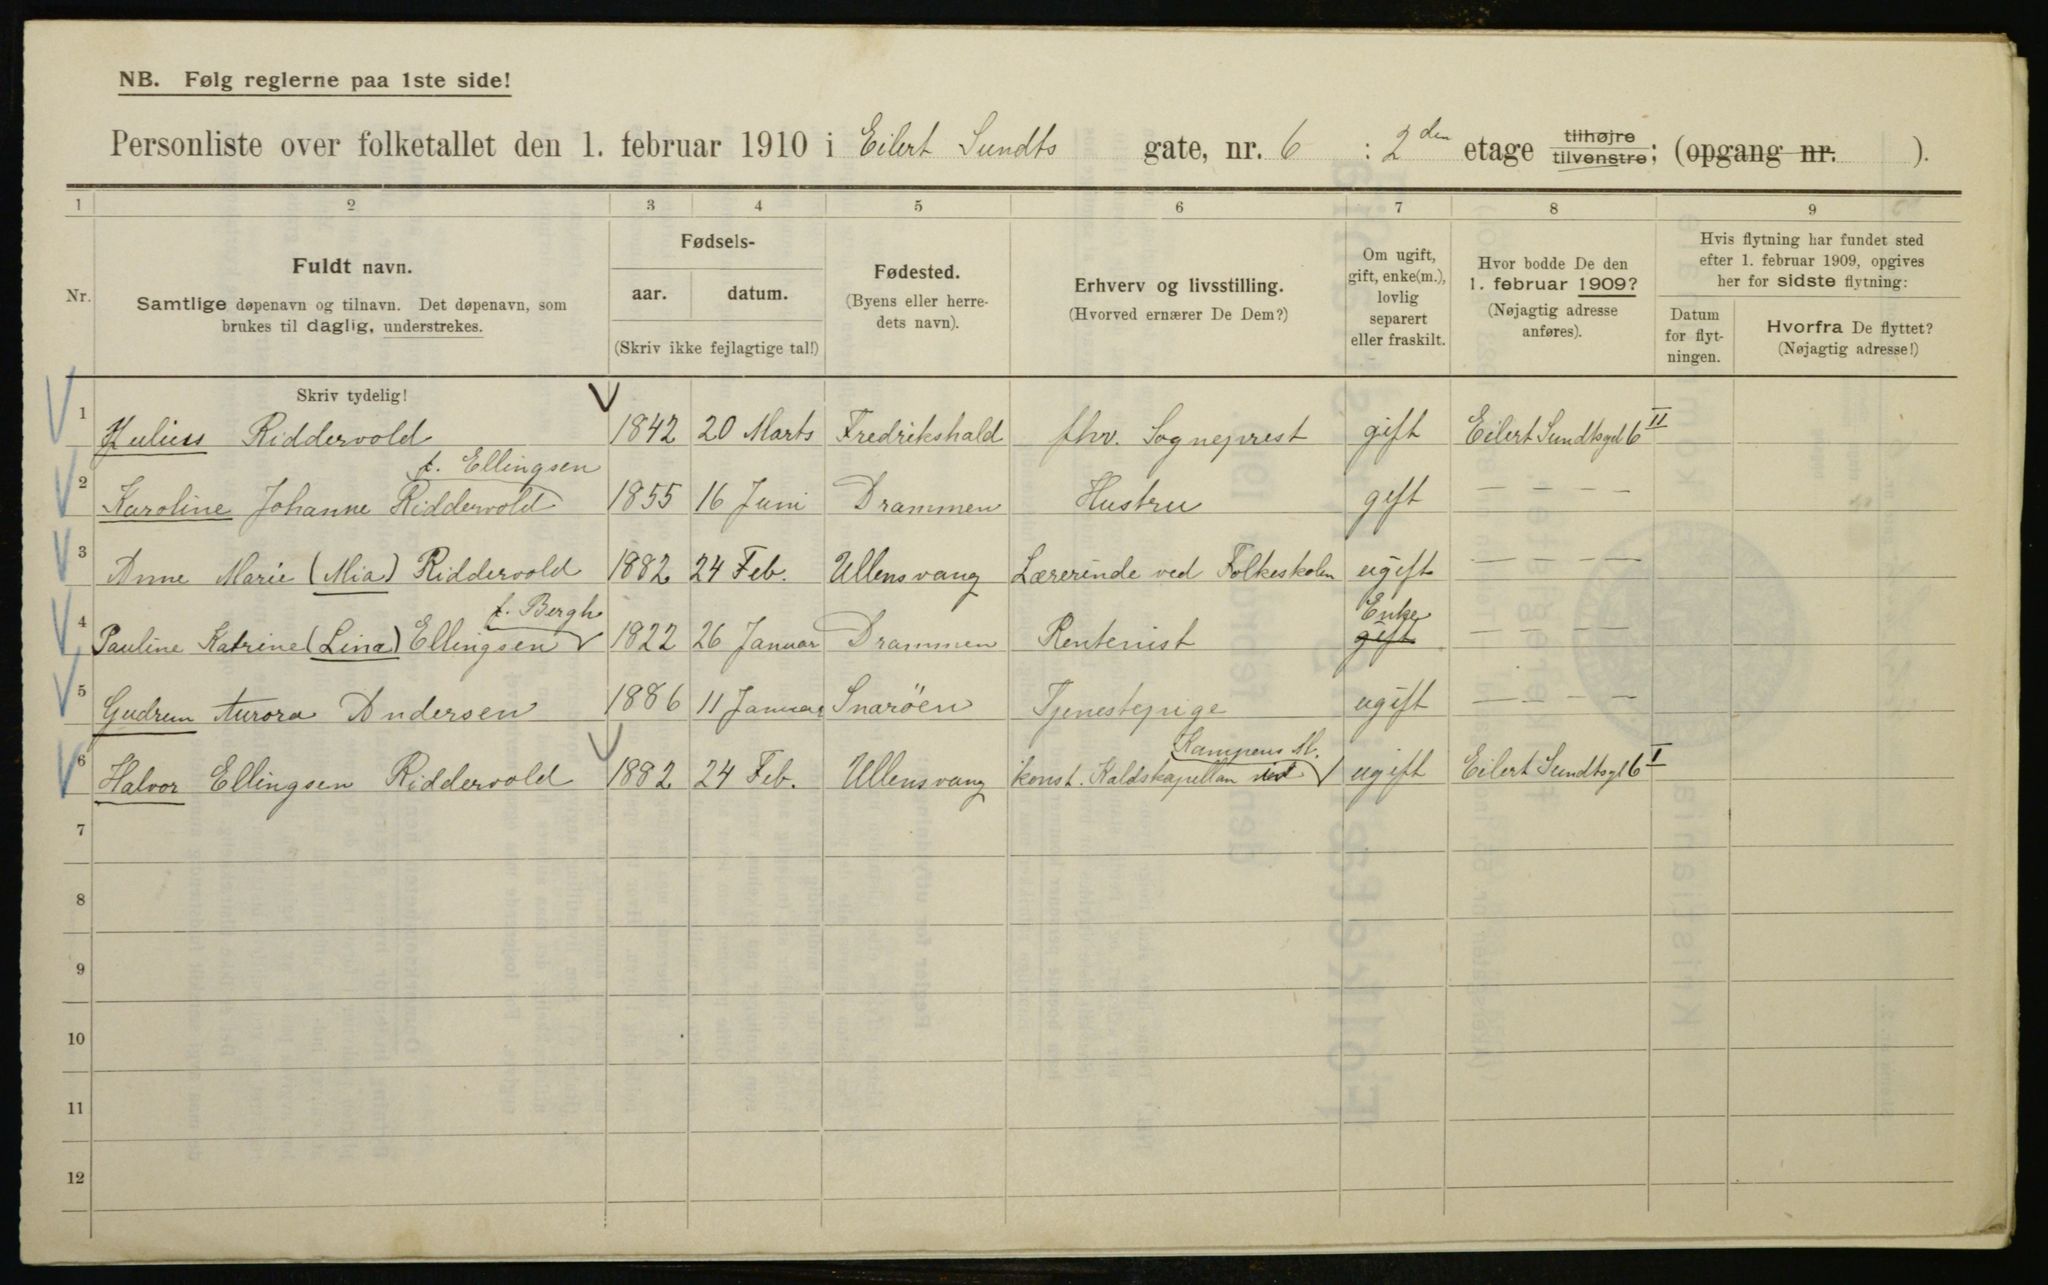 NB. Følg reglerne paa 1ste side!
Personliste over folketallet den 1. februar 1910 i Eilert Sundts gate, nr. 6 : 2den etage tilhøjre tilvenstre; (opgang nr. ).
1 2 3 4 5 6 7 8 9
Nr.
Fuldt navn.
Samtlige døpenavn og tilnavn. Det døpenavn, som
brukes til daglig, understrekes.
Fødsels-
aar. datum.
(Skriv ikke fejlagtige tal!)
Fødested.
(Byens eller herre-
dets navn).
Erhverv og livsstilling.
(Hvorved ernærer De Dem?)
Om ugift,
gift, enke(m.),
lovlig
separert
eller fraskilt.
Hvor bodde De den
1. februar 1909?
(Nøjagtig adresse
anføres).
Hvis flytning har fundet sted
efter 1. februar 1909, opgives
her for sidste flytning:
Datum
for flyt-
ningen.
Hvorfra De flyttet?
(Nøjagtig adresse!)
Skriv tydelig!
1 Julius Riddervold 1842 20 Marts Fredrikshald fhv. Sogneprest gift Eilert Sundtsgt 6 II
f. Ellingsen
2 Karoline Johanne Riddervold 1855 16 Juni Drammen Hustru gift — — — —
3 Anne Marie (Mia) Riddervold 1882 24 Feb. Ullensvang Lærerinde ved Folkeskolen ugift — — — —
f. Bergh Enke
4 Pauline Katrine (Lina) Ellingsen 1822 26 Januar Drammen Rentenist gift — — — —
5 Gudrun Aurora Andersen 1886 11 Januar Snarøen Tjenestepige ugift — — — —
Kampens M.
6 Halvor Ellingsen Riddervold 1882 24 Feb. Ullensvang konst. Kaldskapellan ugift Eilert Sundtsgt 6 I
7
8
9
10
11
12